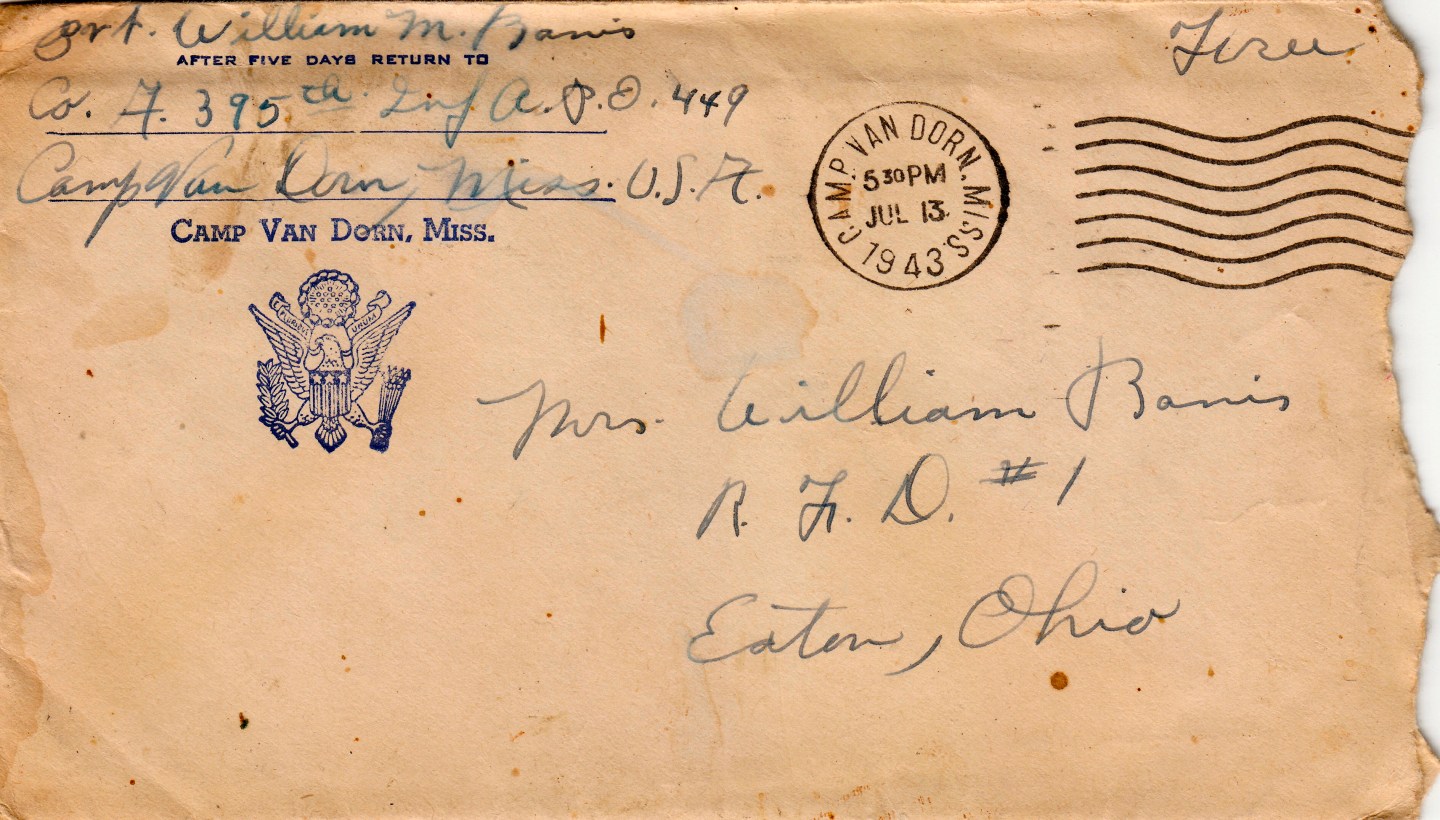 Pvt. William M. Banis
AFTER FIVE DAYS RETURN TO
Co. F. 395th Inf A.P.O. 449
Camp Van Dorn, Miss. U.S.A.
CAMP VAN DORN, MISS.
E PLURIBUS UNUM
Free
CAMP VAN DORN, MISS.
5 30 PM
JUL 13
1943
Mrs. William Banis
R. F. D. #1
Eaton, Ohio